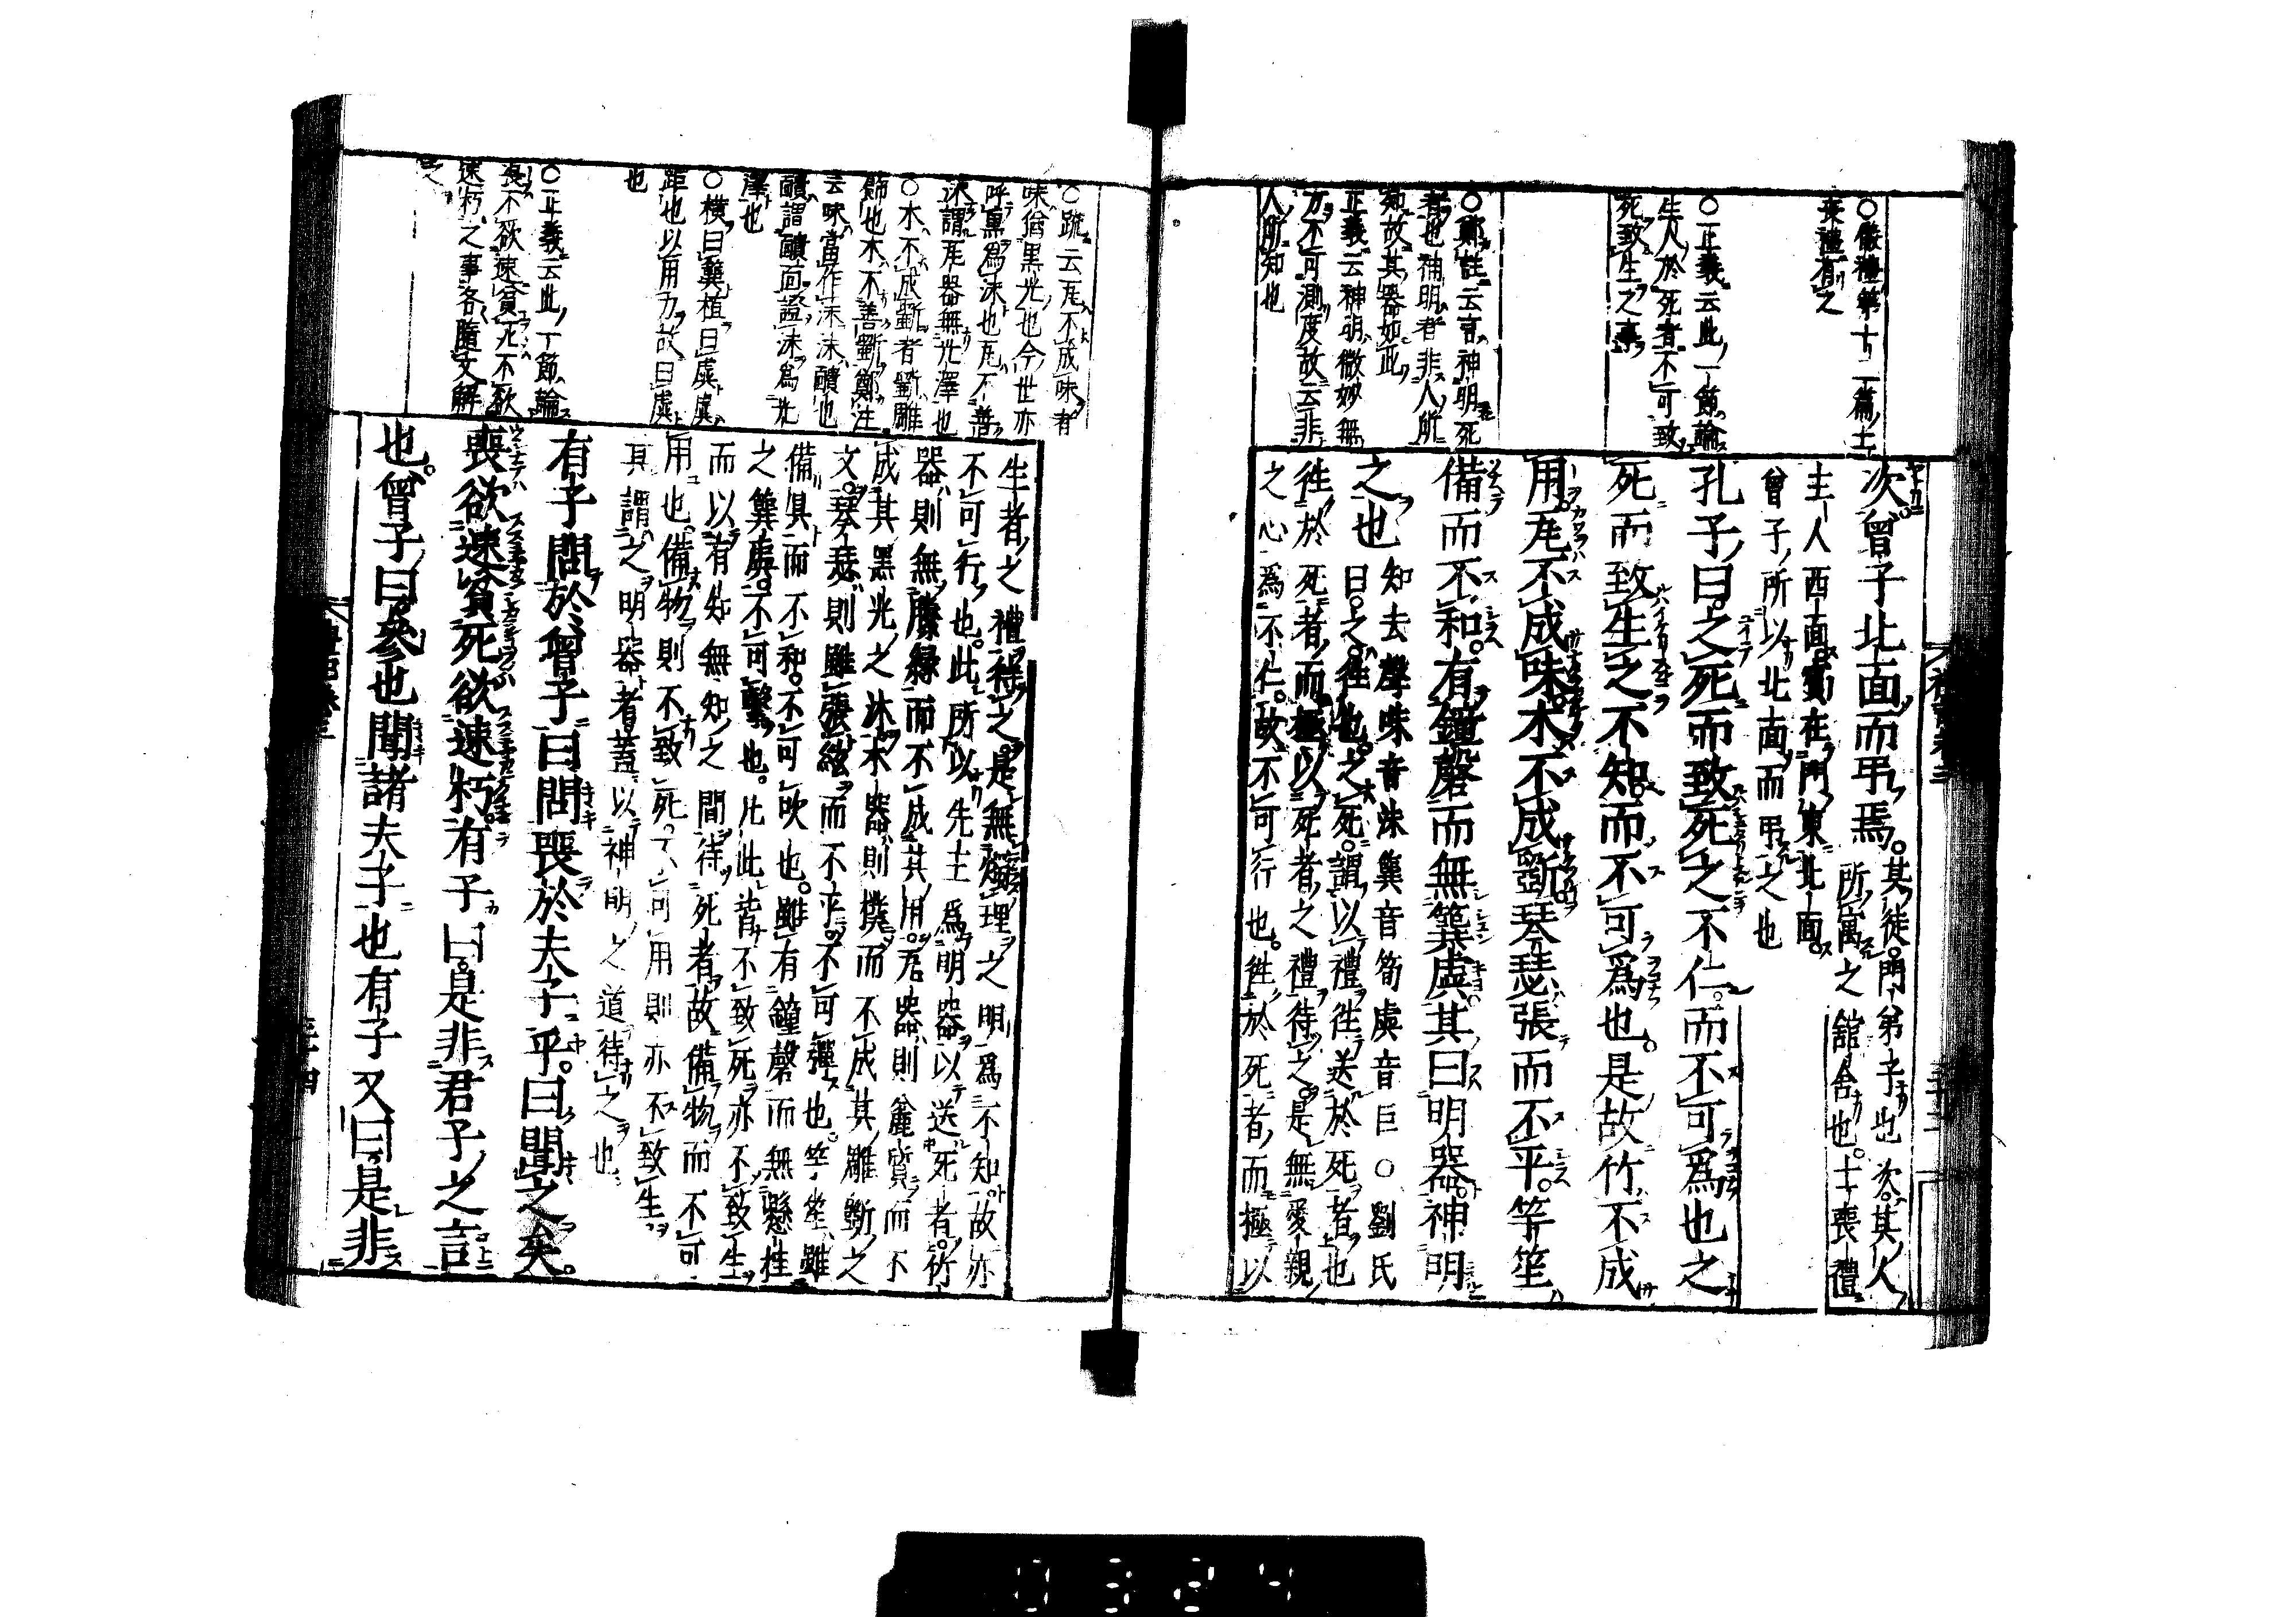 ○儀禮第十二篇士
喪禮有之
○正義云此一節論
生人於死者不可致
死致生之事
○鄭註云言神明死
者也神明者非人所
知故其器如此
正義云神明微妙無
方不可測度故云非
人所知也
次曾子北面而弔焉其徒門弟子也次其人
所寓之舘舍也士喪禮
主人西面賓在門東北面
曾子所以北面而弔之也
孔子曰之死而致死之不仁而不可爲也之
死而致生之不知而不可爲也是故竹不成
用瓦不成味木不成斲琴瑟張而不平竽笙
備而不和有鐘磬而無簨虡其曰明器神明
之也知去聲味音沬簨音筍虡音巨○劉氏
曰之往也之死謂以禮往送於死者也
往於死者而極以死者之禮待之是無愛親
之心爲不仁故不可行也往於死者而極以
○疏云瓦不成味者
味猶黒光也今世亦
呼黒爲沬也瓦不善
沬謂瓦器無光澤也
○木不成斲者斲雕
飾也木不善斲鄭注
云味當作沬沬靧也
靧謂靧面證沬爲光
澤也
○橫曰簨植曰虡虡
距也以用力故曰虡
也
○正義云此一節論
喪不欲速貧死不欲
速朽之事各隨文解
之
生者之禮待之是無燭理之明爲不知故亦
不可行也此所以先王爲明器以送死者竹
器則無縢緣而不成其用瓦器則麄質而不
成其黒光之沬木器則樸而不成其雕斲之
文琴瑟則雖張絃而不平不可彈也竽笙雖
備具而不和不可吹也雖有鐘磬而無懸挂
之簨虡不可擊也凡此皆不致死亦不致生
而以有知無知之間待死者故備物而不可
用也備物則不致死不可用則亦不致生
其謂之明器者蓋以神明之道待之也
有子問於曾子曰問喪於夫子乎曰聞之矣
喪欲速貧死欲速朽有子曰是非君子之言
也曾子曰參也聞諸夫子也有子又曰是非
0324